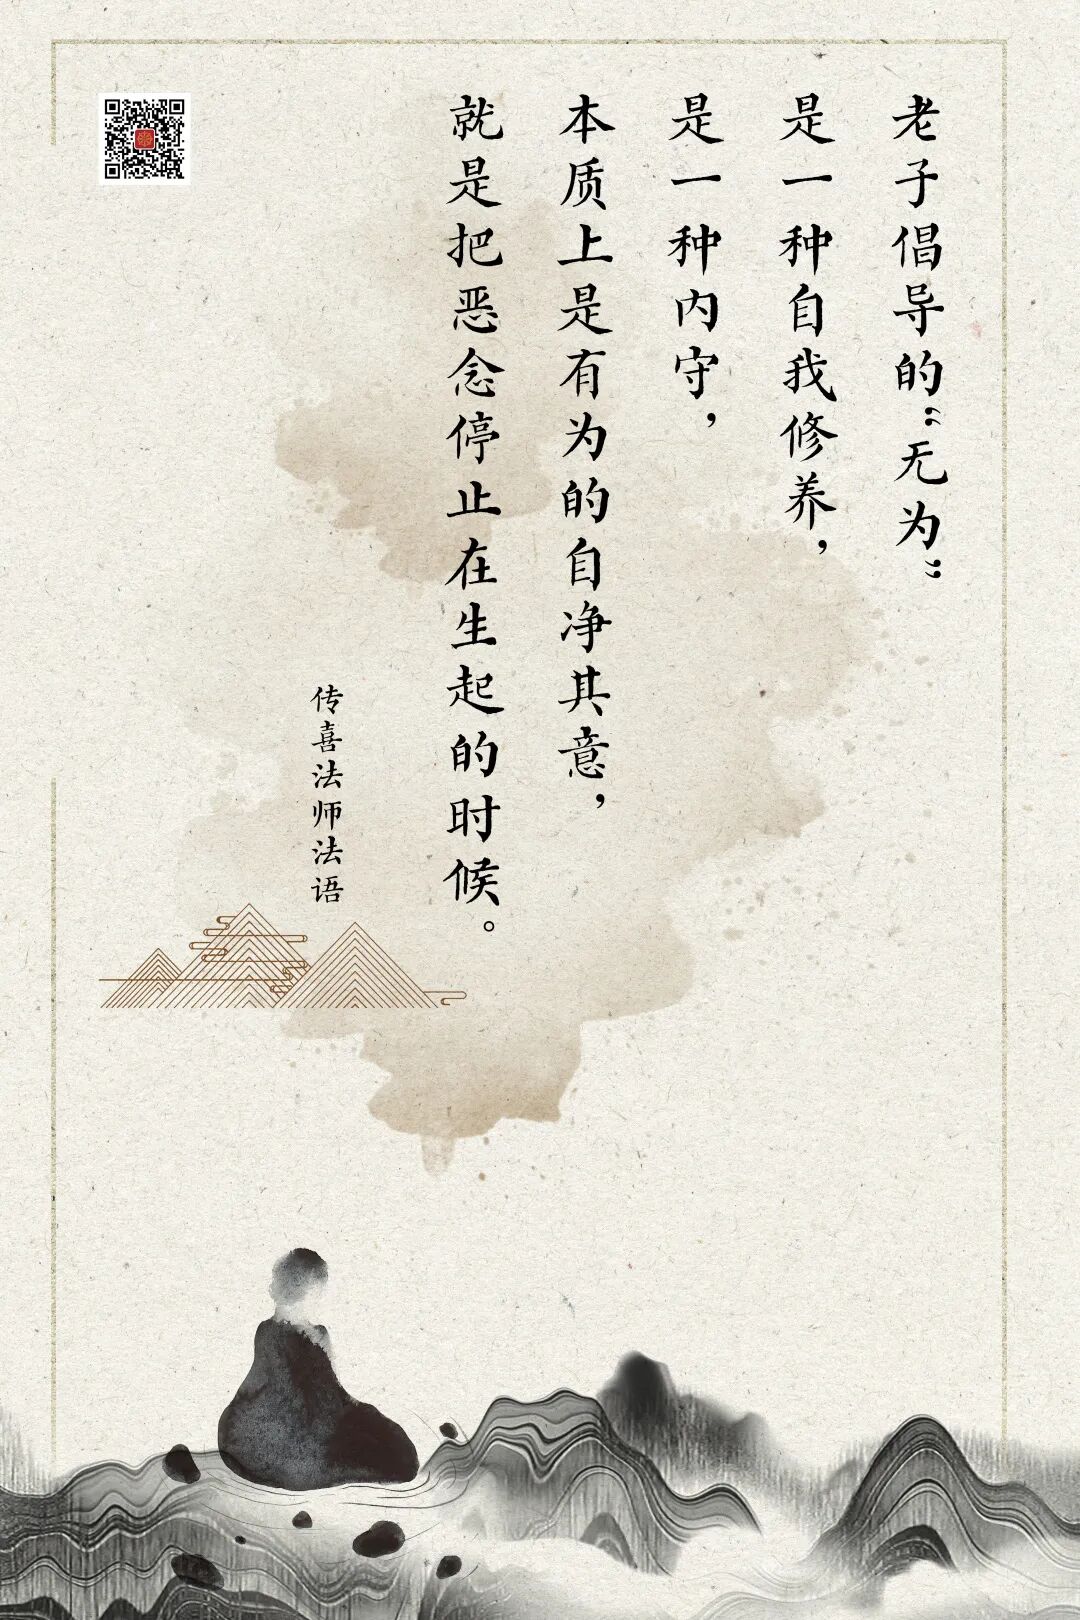 老子倡导的“无为”
是一种自我修养，
是一种内守，
本质上是有为的自净其意，
就是把恶念停止在生起的时候。
传喜法师法语